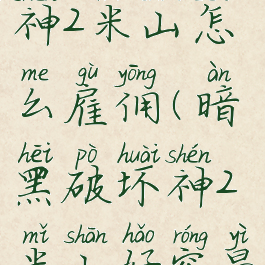 神2米山怎
me gù yōng àn
么雇佣(暗
hēi pò huài shén
黑破坏神2
mǐ shān hǎo róng yì
米山好容易